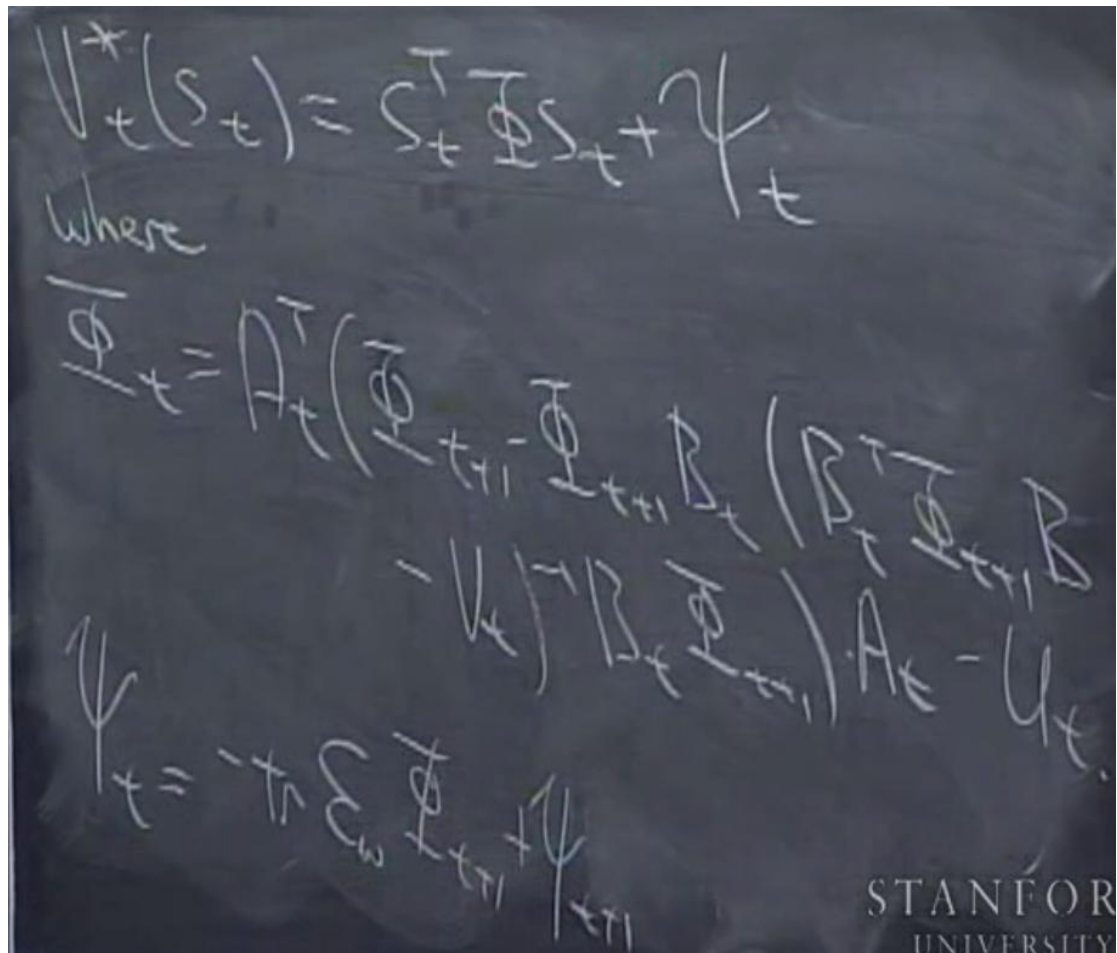 V*_t(s_t) = s_t^T Φ s_t + Ψ_t
where
Φ_t = A_t^T (Φ_{t+1} - Φ_{t+1} B_t (B_t^T Φ_{t+1} B
- V_t)^{-1} B_t Φ_{t+1}) · A_t - U_t.
Ψ_t = -tr Σ_w Φ_{t+1} + Ψ_{t+1}
STANFOR
UNIVERSITY